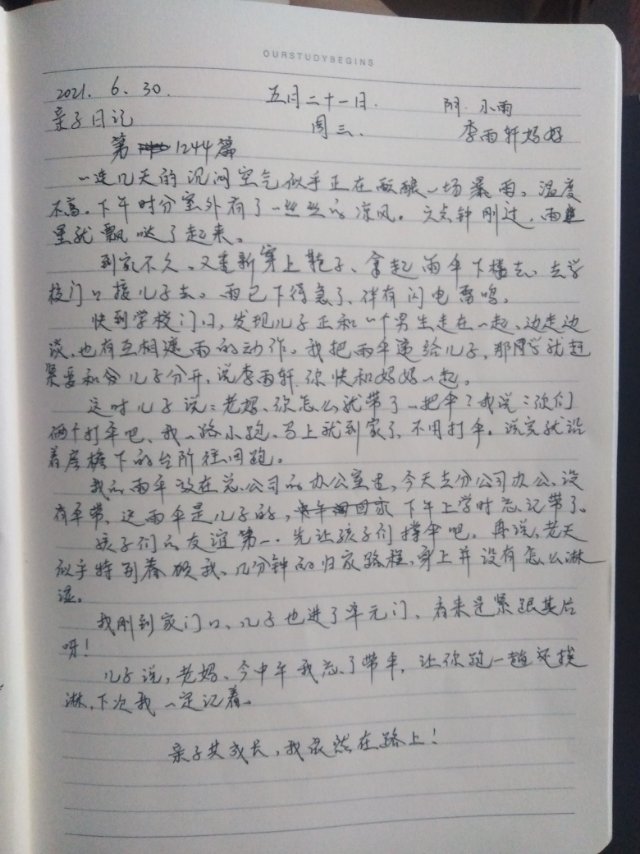 OURSTUDYBEGINS
2021. 6. 30. 五月二十一日. 阴. 小雨
亲子日记 周三. 李雨轩妈妈
第 1244篇
一连几天的沉闷空气似乎正在酝酿一场暴雨。温度
不高。下午时分室外有了一丝丝的凉风。六点钟刚过,雨
星就飘哒了起来。
到家不久。又重新穿上鞋子、拿起雨伞下楼去。去学
校门口接儿子去。雨已下得急了、伴有闪电雷鸣。
快到学校门口,发现儿子正和一个男生走在一起、边走边
谈、也有互相遮雨的动作。我把雨伞递给儿子,那同学就赶
紧要和儿子分开,说李雨轩你快和妈妈一起。
这时儿子说:老妈、你怎么就带了一把伞?我说:你们
两个打伞吧、我一路小跑、马上就到家了、不用打伞。说完就沿
着房檐下的台阶往回跑。
我的雨伞放在总公司的办公室里,今天去分公司办公、没
有伞带。这雨伞是儿子的,下午上学时忘记带了。
孩子们的友谊第一.先让孩子们撑伞吧。再说,老天
似乎特别眷顾我、几分钟的归家路程、身上并没有怎么淋
湿。
我刚到家门口、儿子也进了单元门、看来是紧跟其后
呀!
儿子说,老妈、今中午我忘了带伞,让你跑一趟还挨
淋,下次我一定记着。
亲子共成长,我依然在路上!